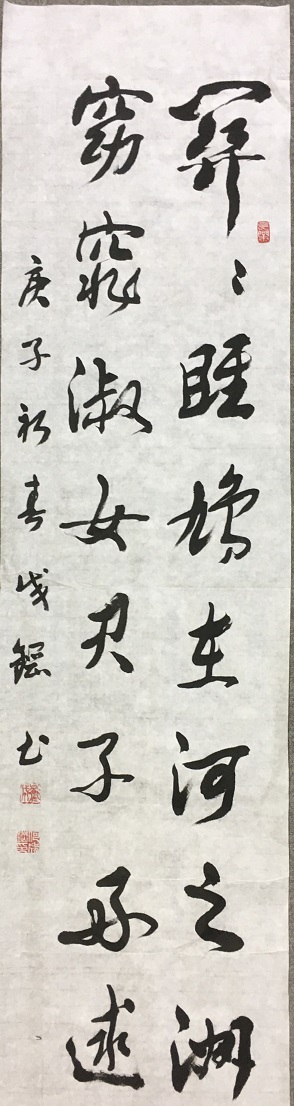 關〻雎鳩在河之洲
窈窕淑女君子好逑
庚子初春